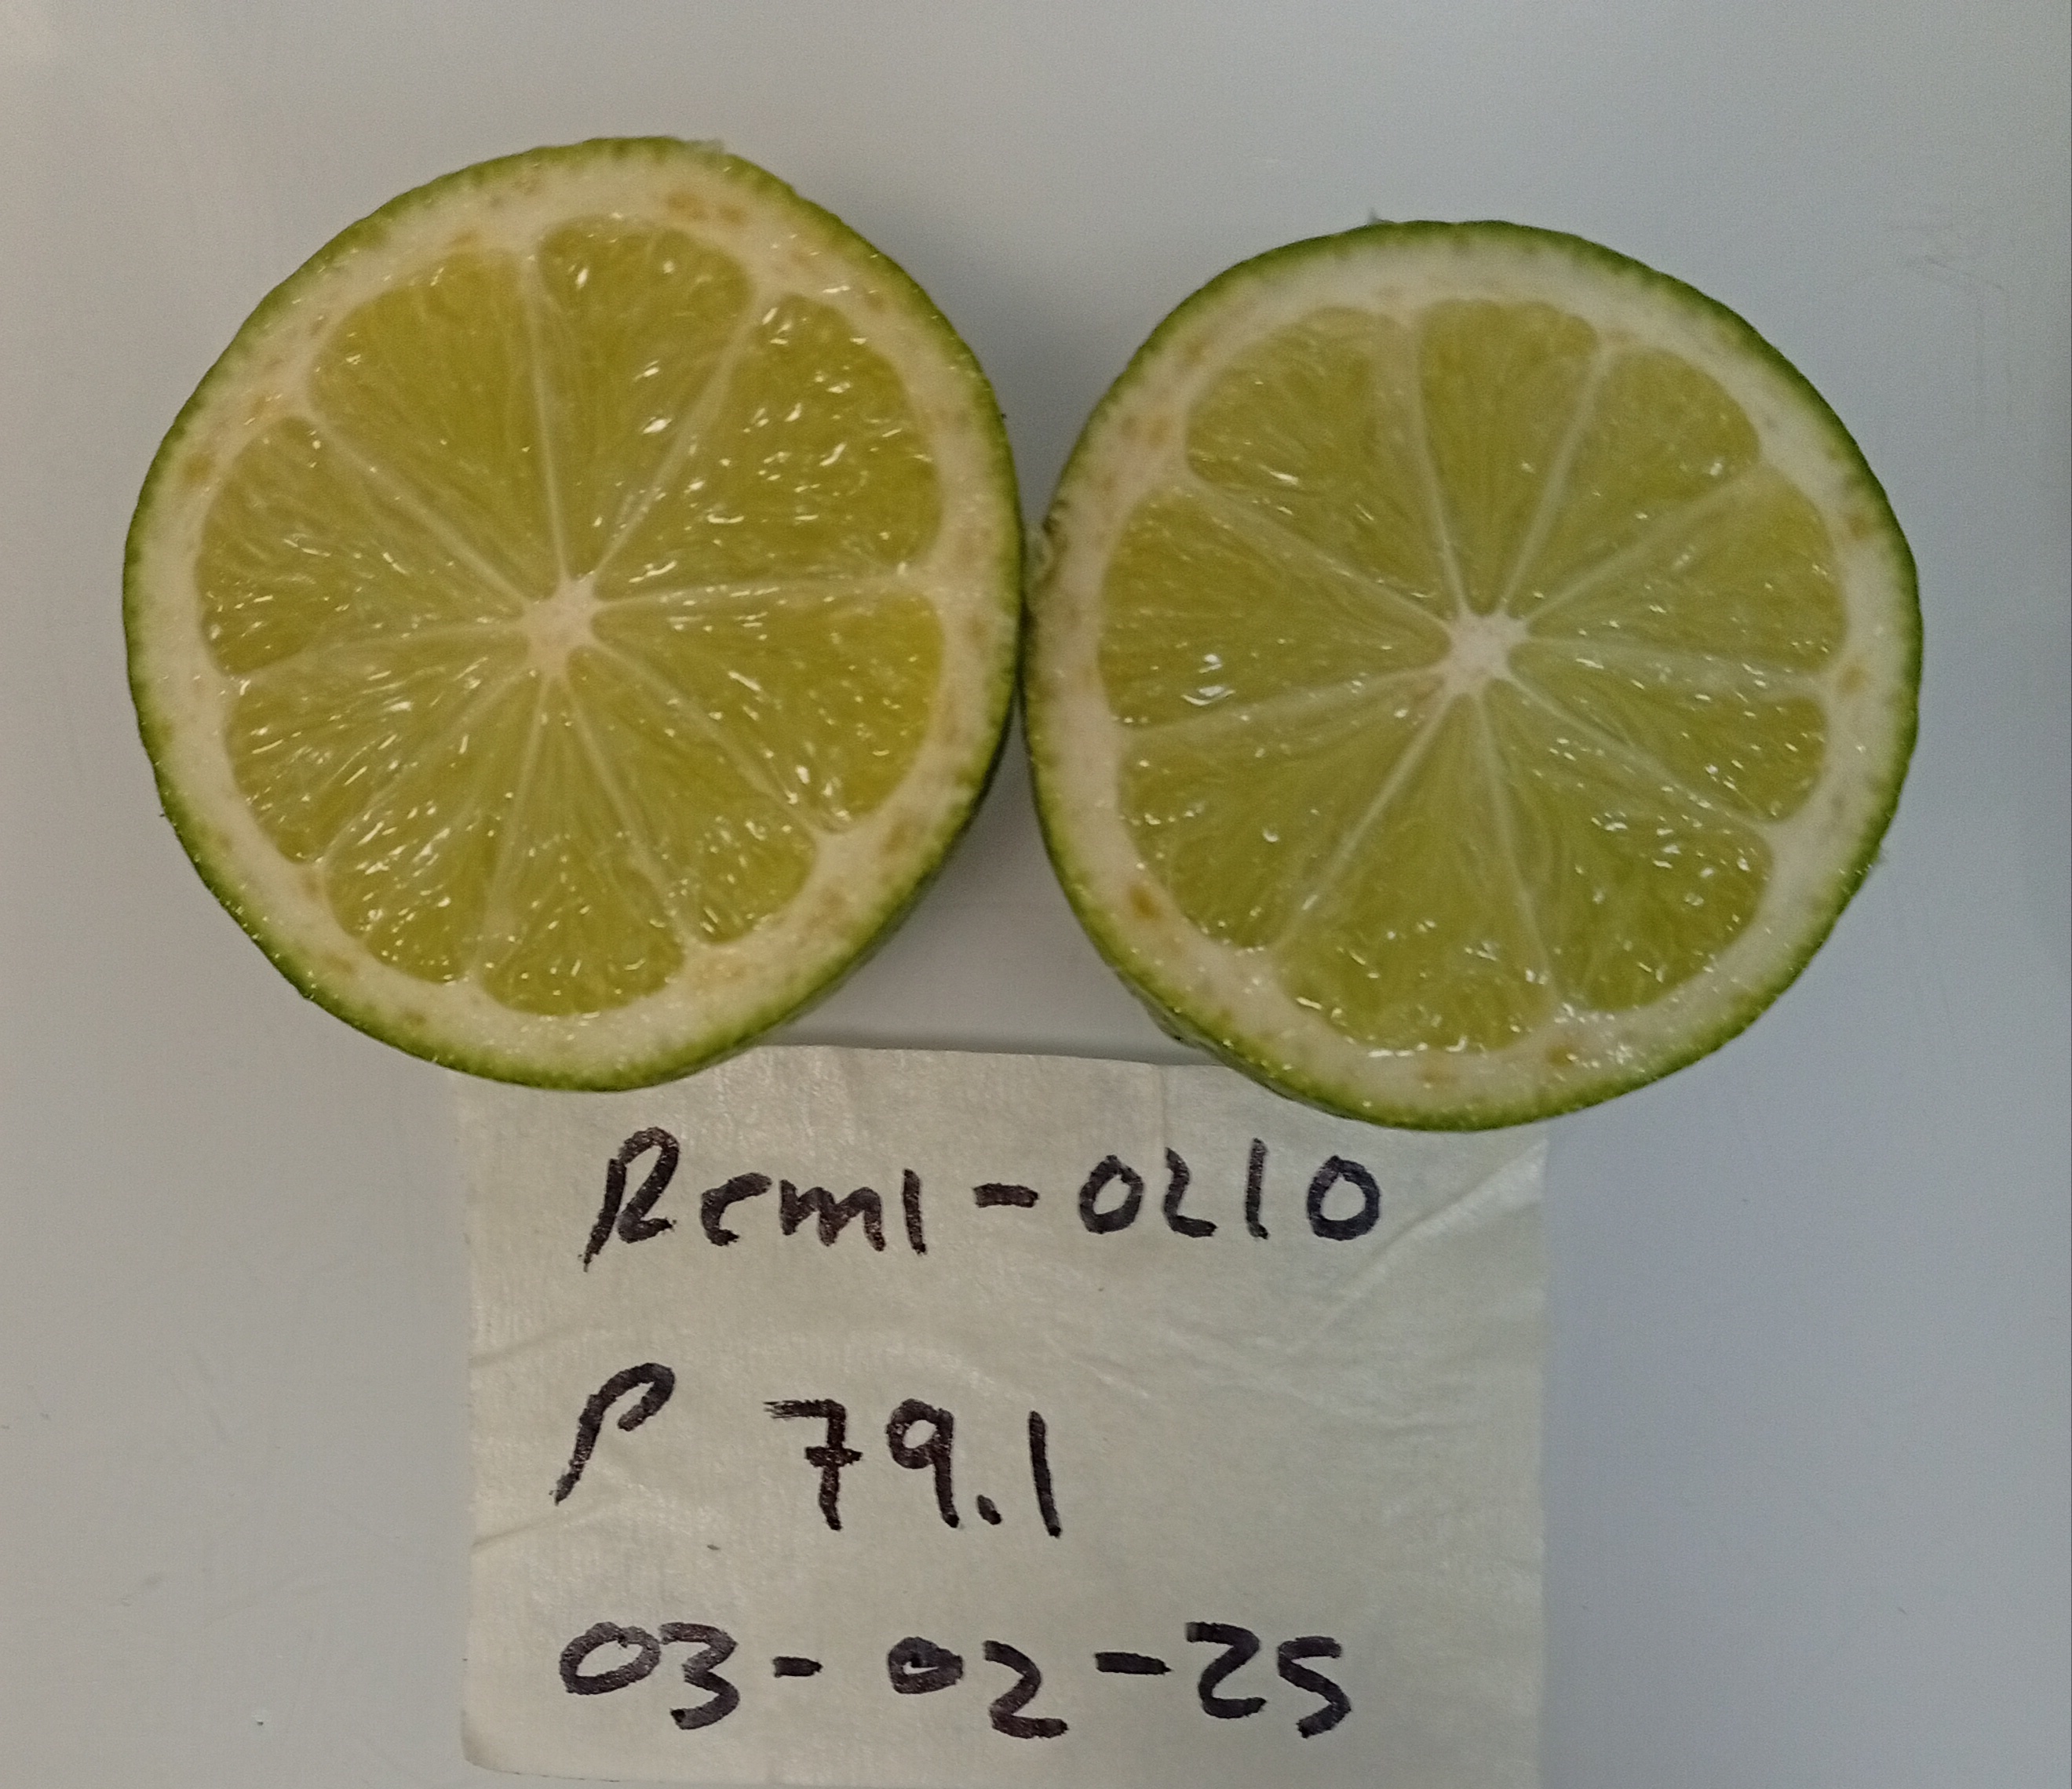 Rem1-0210
P 79.1
03-02-25